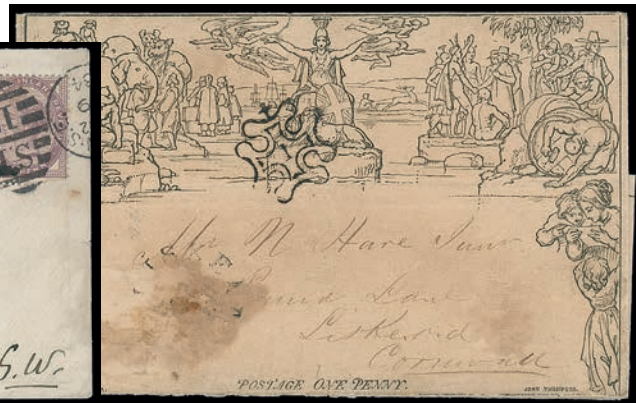 Mr N Hare Junr
Pound Lane
Liskeard
Cornwall
POSTAGE ONE PENNY.
JOHN THOMPSON.
S.W.